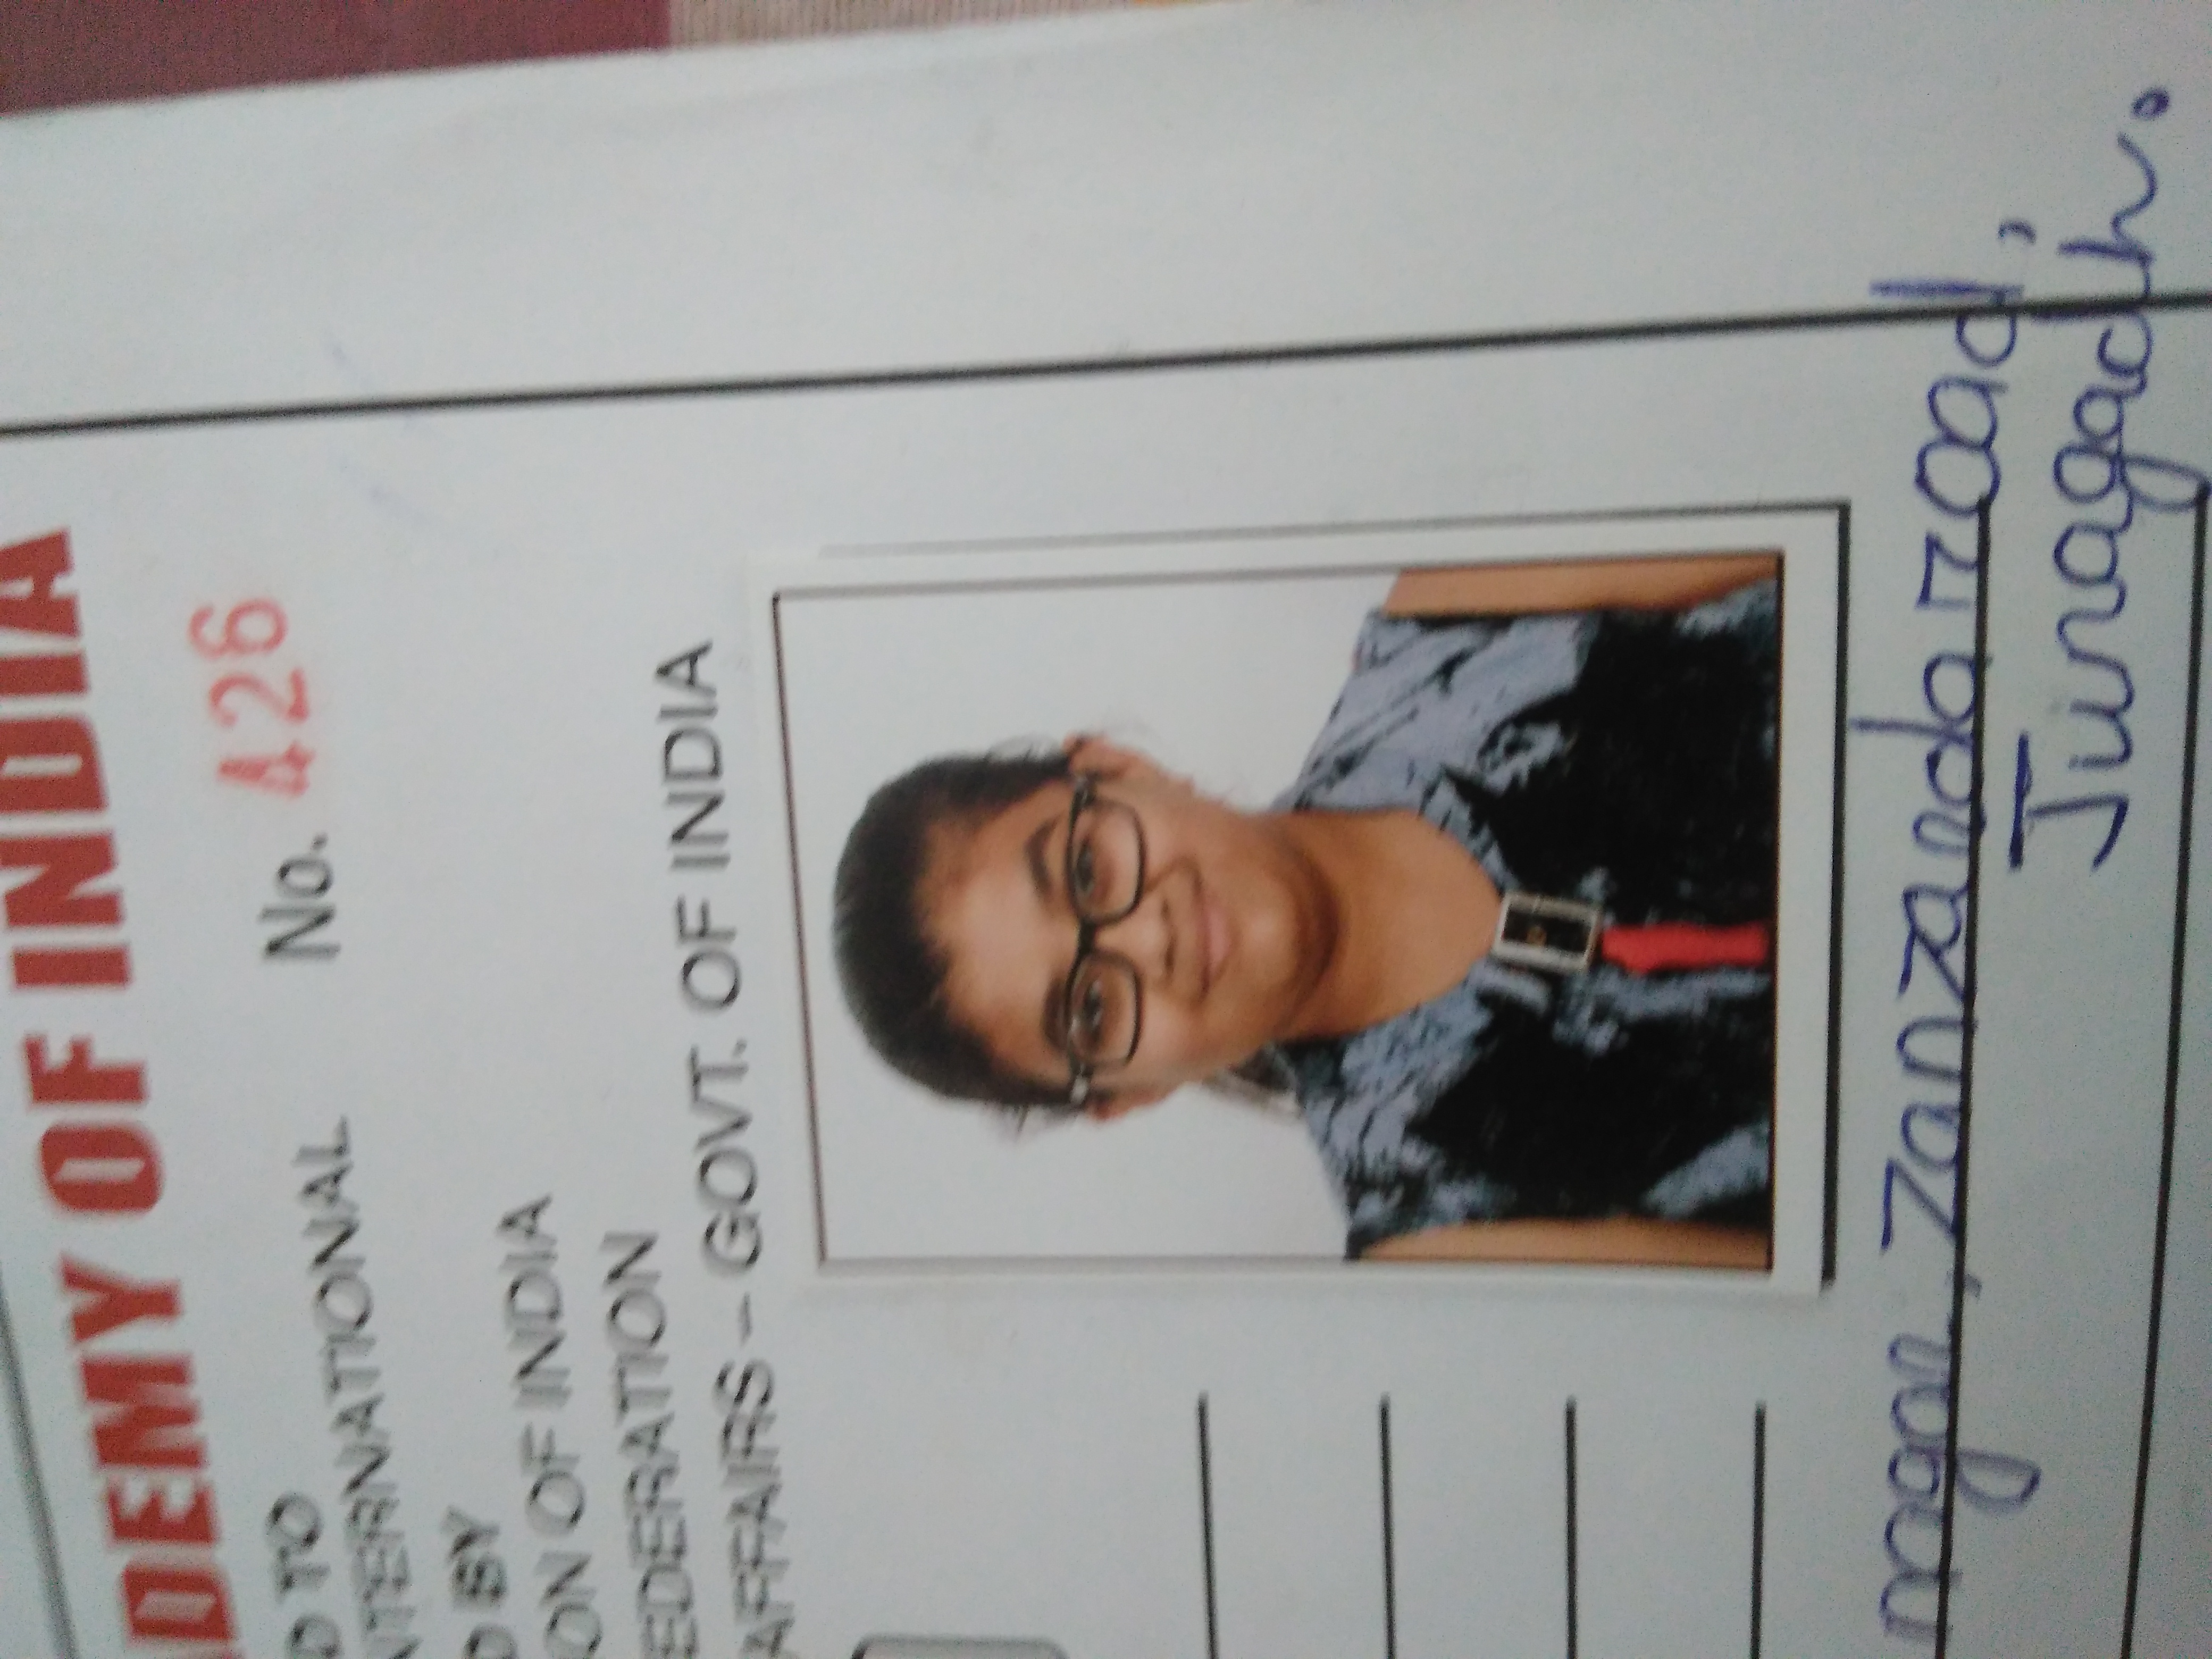 DEMY OF INDIA
D TO No. 426
NTERNATIONAL
D BY
ON OF INDIA
EDERATION
AFFAIRS – GOVT. OF INDIA
nagar, Zanzarda road,
Junagadh.